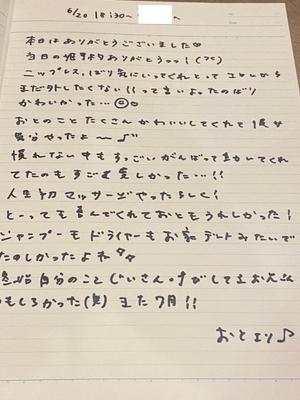 6/20 18:30〜 へ
本日はありがとうございました♡
当日の ありがとうっっ!
ニップレス、 気にいってくれとって
まだ外したくない!!って言いよったのばり
かわいかった…
おとのことたくさんかわいいしてくれて
気分やったよ〜♪
慣れない中もすっごいがんばって動かしてくれ
てたのもすごく楽しかった…!!
人生初マッサージやったらしく!
とーっても喜んでくれておともうれしかった!
シャンプーもドライヤーもお家デートみたいで
たのしかったよね
自分のことじいさん してまお兄さん
もしろかった(笑) また7月!!
おとより♪